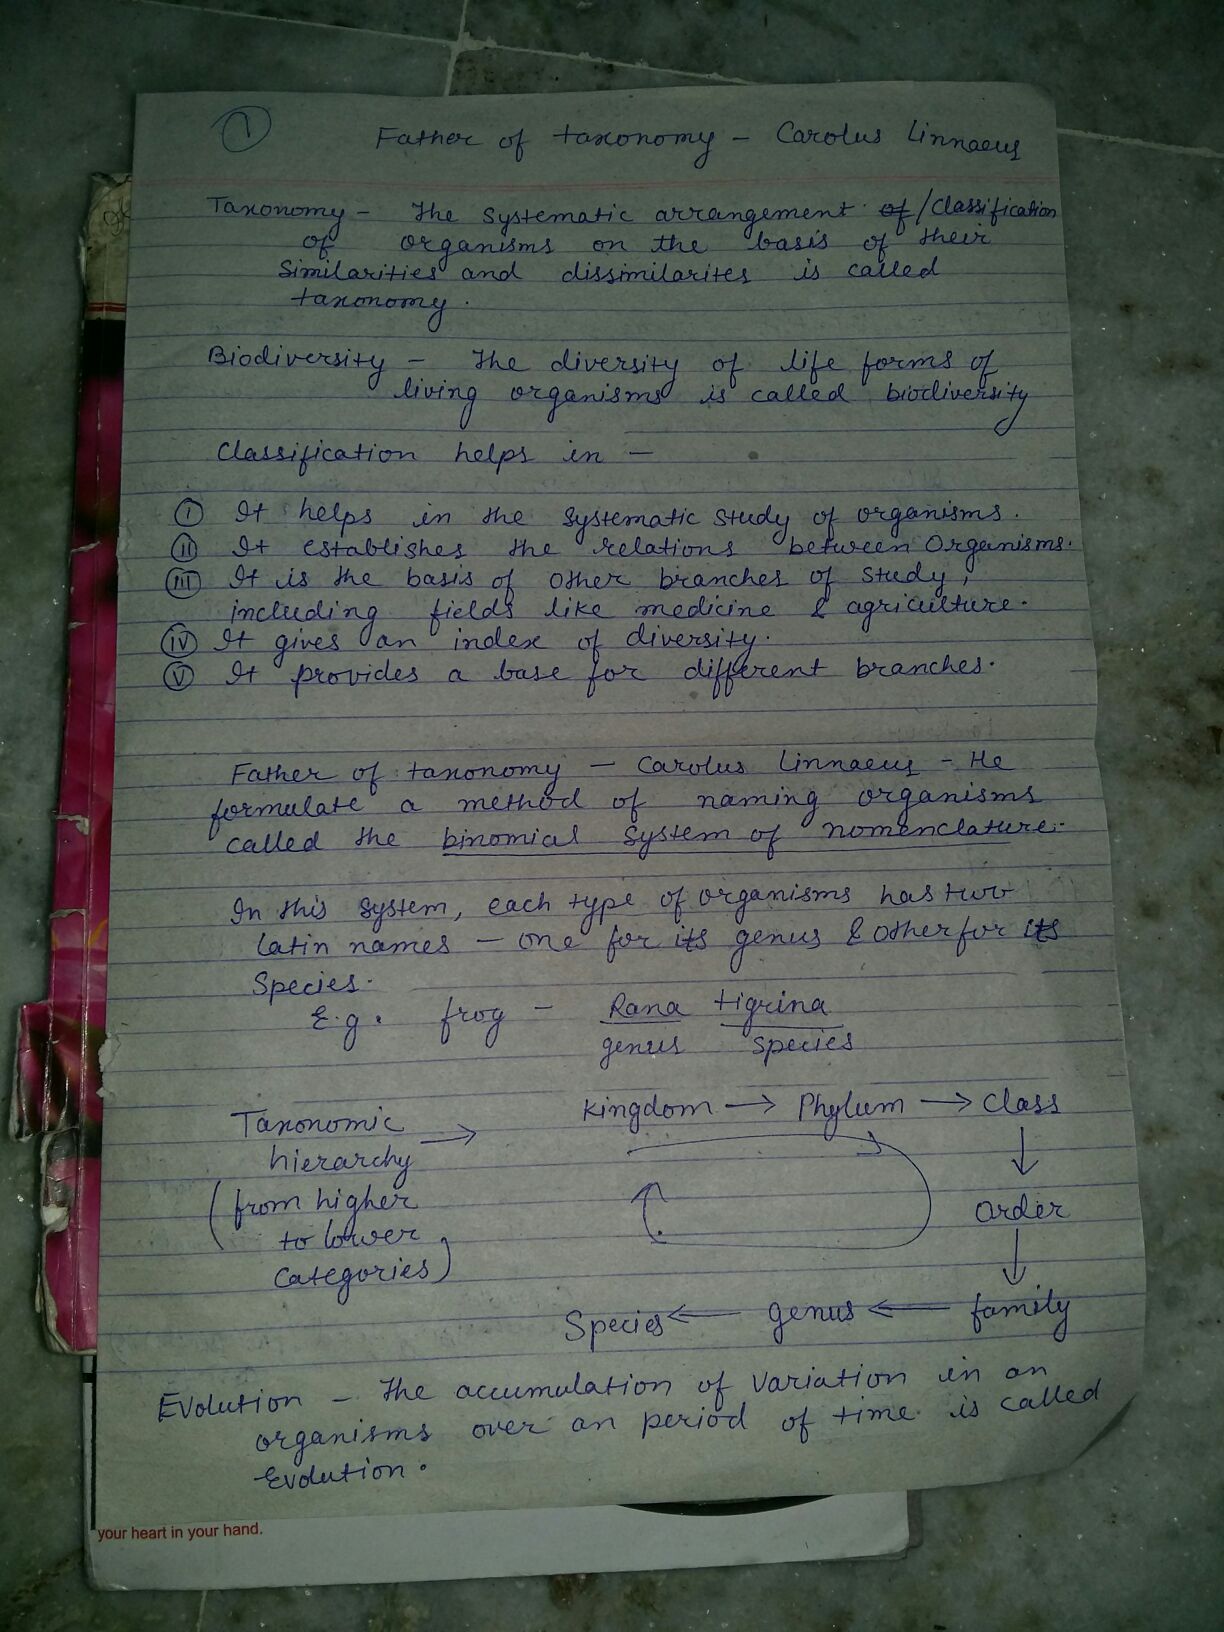 1
Father of taxonomy - Carolus Linnaeus
Taxonomy - The systematic arrangement of / Classification
of organisms on the basis of their
similarities and dissimilarites is called
taxonomy.
Biodiversity - The diversity of life forms of
living organisms is called biodiversity
Classification helps in -
(I) It helps in the systematic study of organisms.
(II) It establishes the relations between organisms.
(III) It is the basis of other branches of study,
including fields like medicine & agriculture.
(IV) It gives an index of diversity.
(V) It provides a base for different branches.
Father of taxonomy - Carolus Linnaeus - He
formulate a method of naming organisms
called the binomial system of nomenclature.
In this system, each type of organisms has two
latin names - one for its genus & other for its
species.
E.g. frog - Rana tigrina
genus species
Kingdom → Phylum → Class
Taxonomic →
hierarchy
(from higher
to lower
categories)
Order
Species ← genus ← family
Evolution - The accumulation of variation in an
organisms over an period of time is called
Evolution.
your heart in your hand.